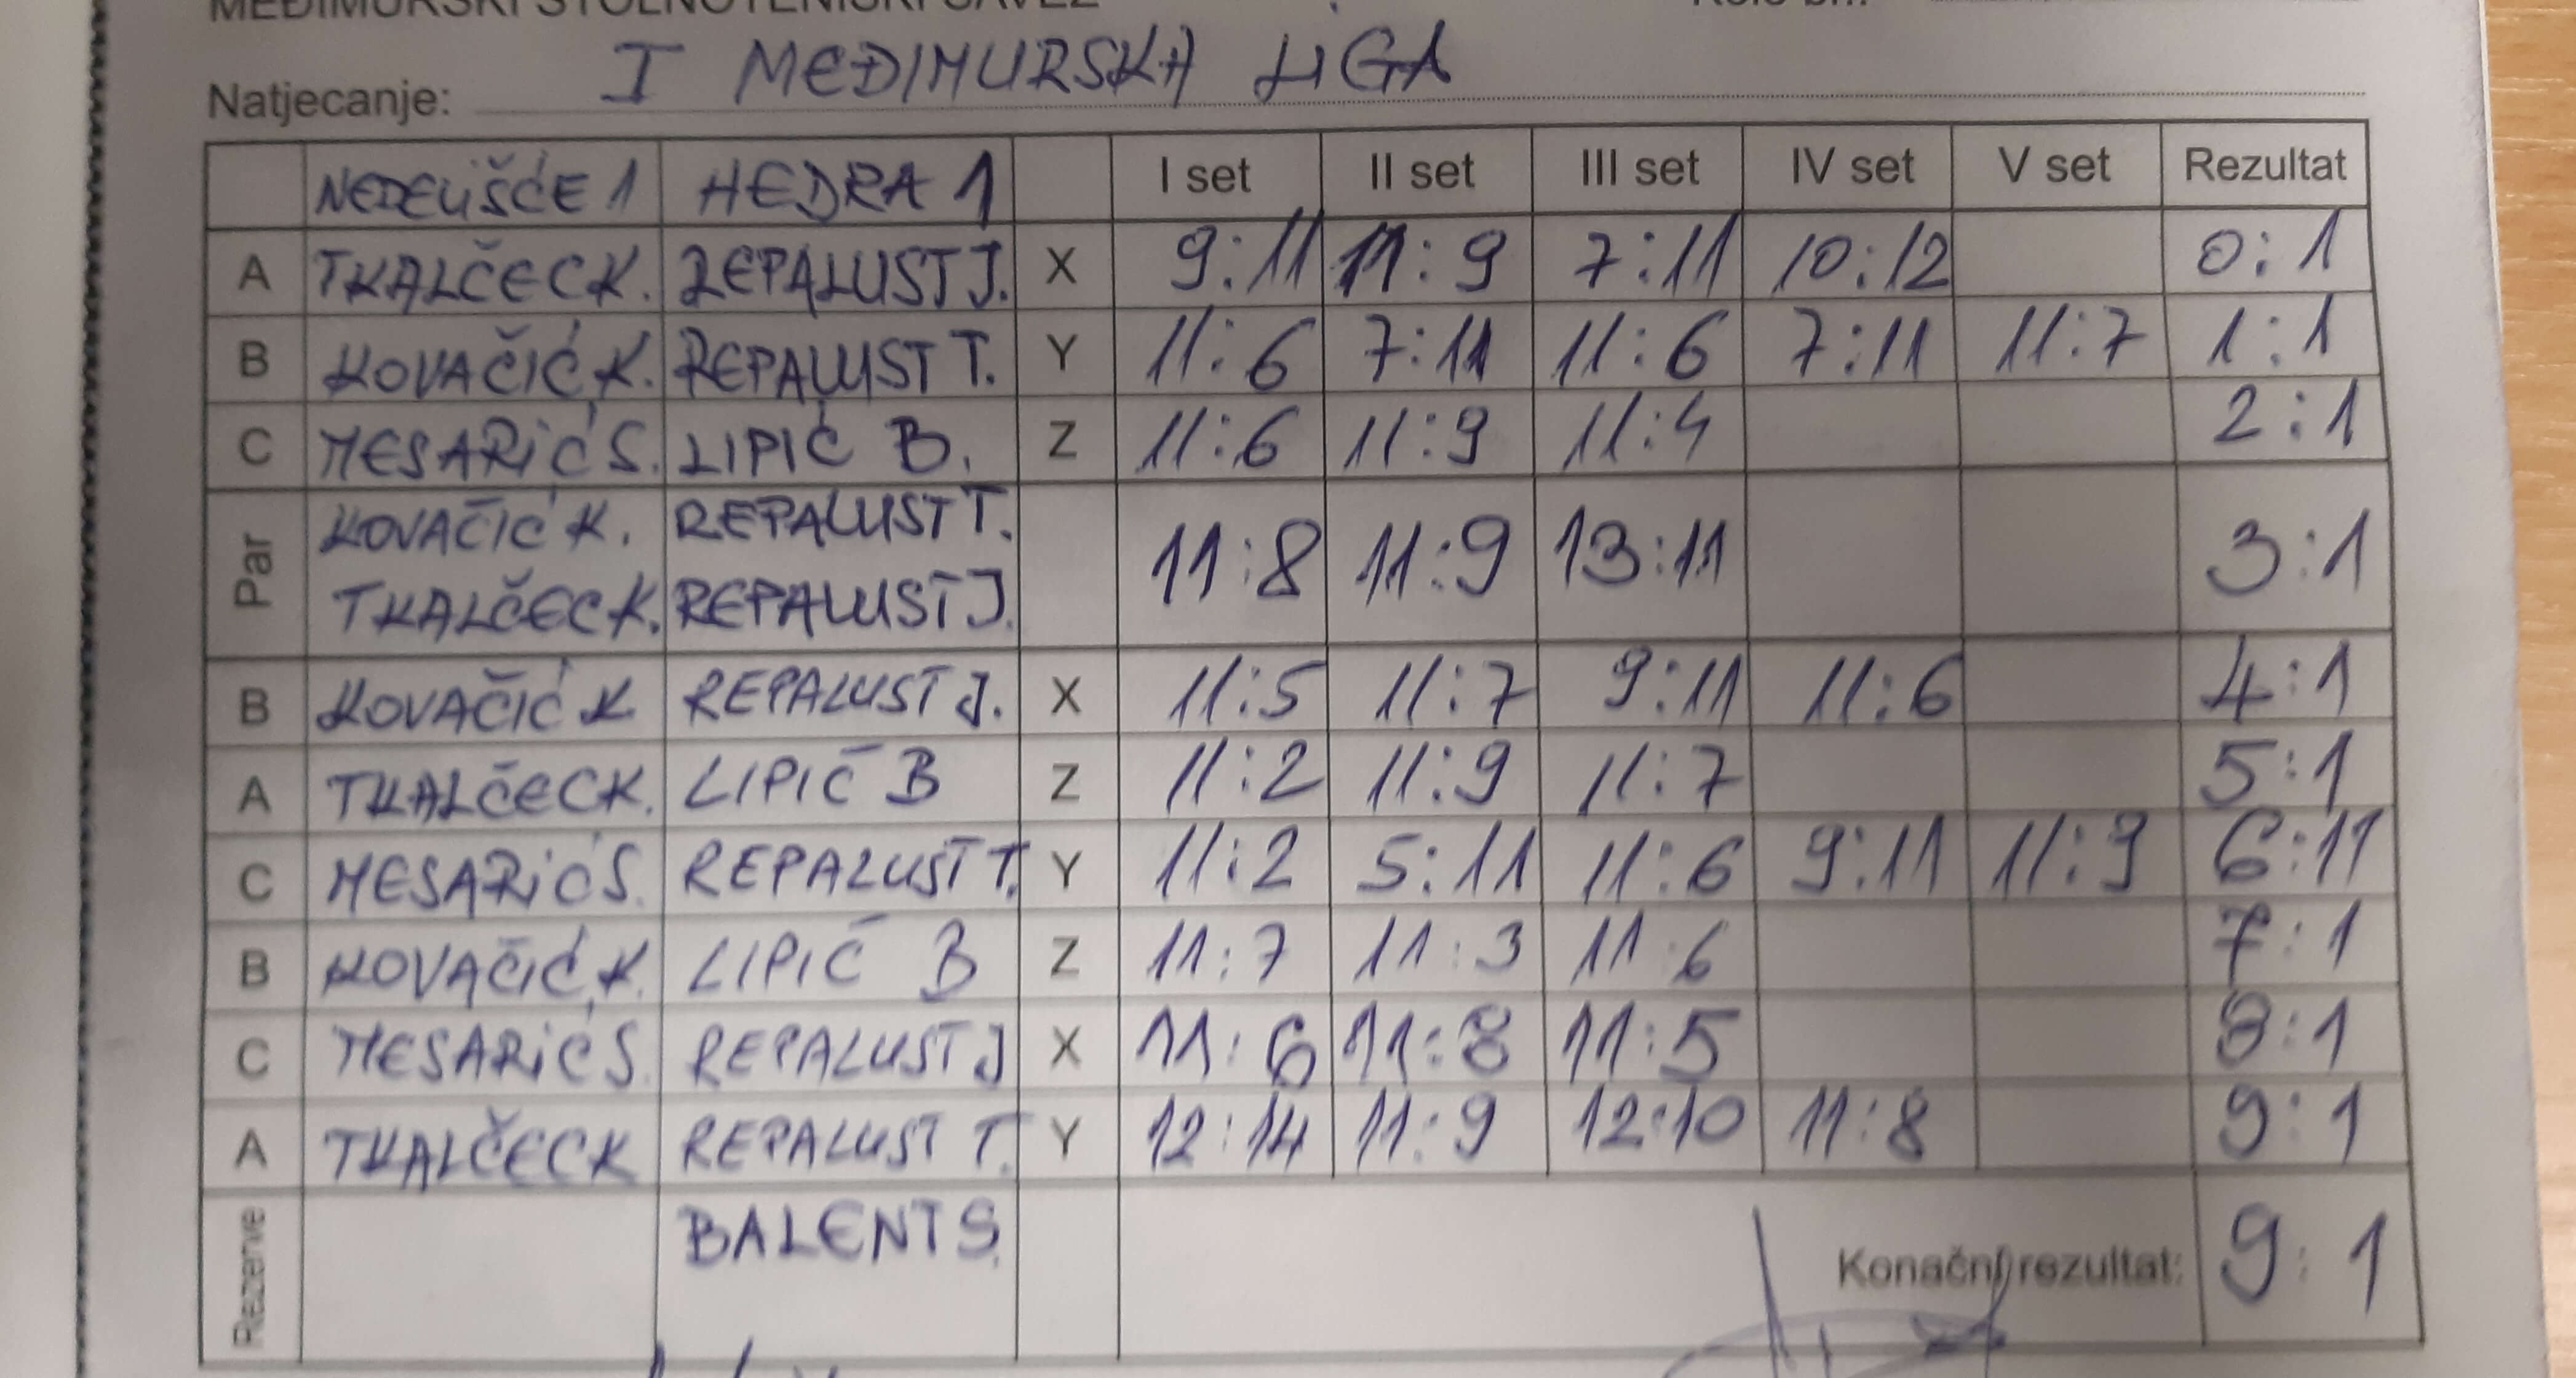 MEĐIMURSKI STOLNOTENISKI SAVEZ Kolo br.:
Natjecanje: I MEĐIMURSKA LIGA
NEDELIŠĆE 1 HEDRA 1 I set II set III set IV set V set Rezultat
A TKALČEC K. REPALUST J. X 9:11 11:9 7:11 10:12 0:1
B KOVAČIĆ K. REPALUST T. Y 11:6 7:11 11:6 7:11 11:7 1:1
C MESARIĆ S. LIPIĆ B. Z 11:6 11:9 11:4 2:1
Par KOVAČIĆ K. REPALUST T. 11:8 11:9 13:11 3:1
TKALČEC K. REPALUST J.
B KOVAČIĆ K REPALUST J. X 11:5 11:7 9:11 11:6 4:1
A TKALČEC K. LIPIĆ B Z 11:2 11:9 11:7 5:1
C MESARIĆ S. REPALUST T. Y 11:2 5:11 11:6 9:11 11:9 6:11
B KOVAČIĆ K. LIPIĆ B Z 11:7 11:3 11:6 7:1
C MESARIĆ S. REPALUST J X 11:6 11:8 11:5 8:1
A TKALČEC K REPALUST T. Y 12:14 11:9 12:10 11:8 9:1
Rezerve BALENT S. Konačni rezultat: 9:1